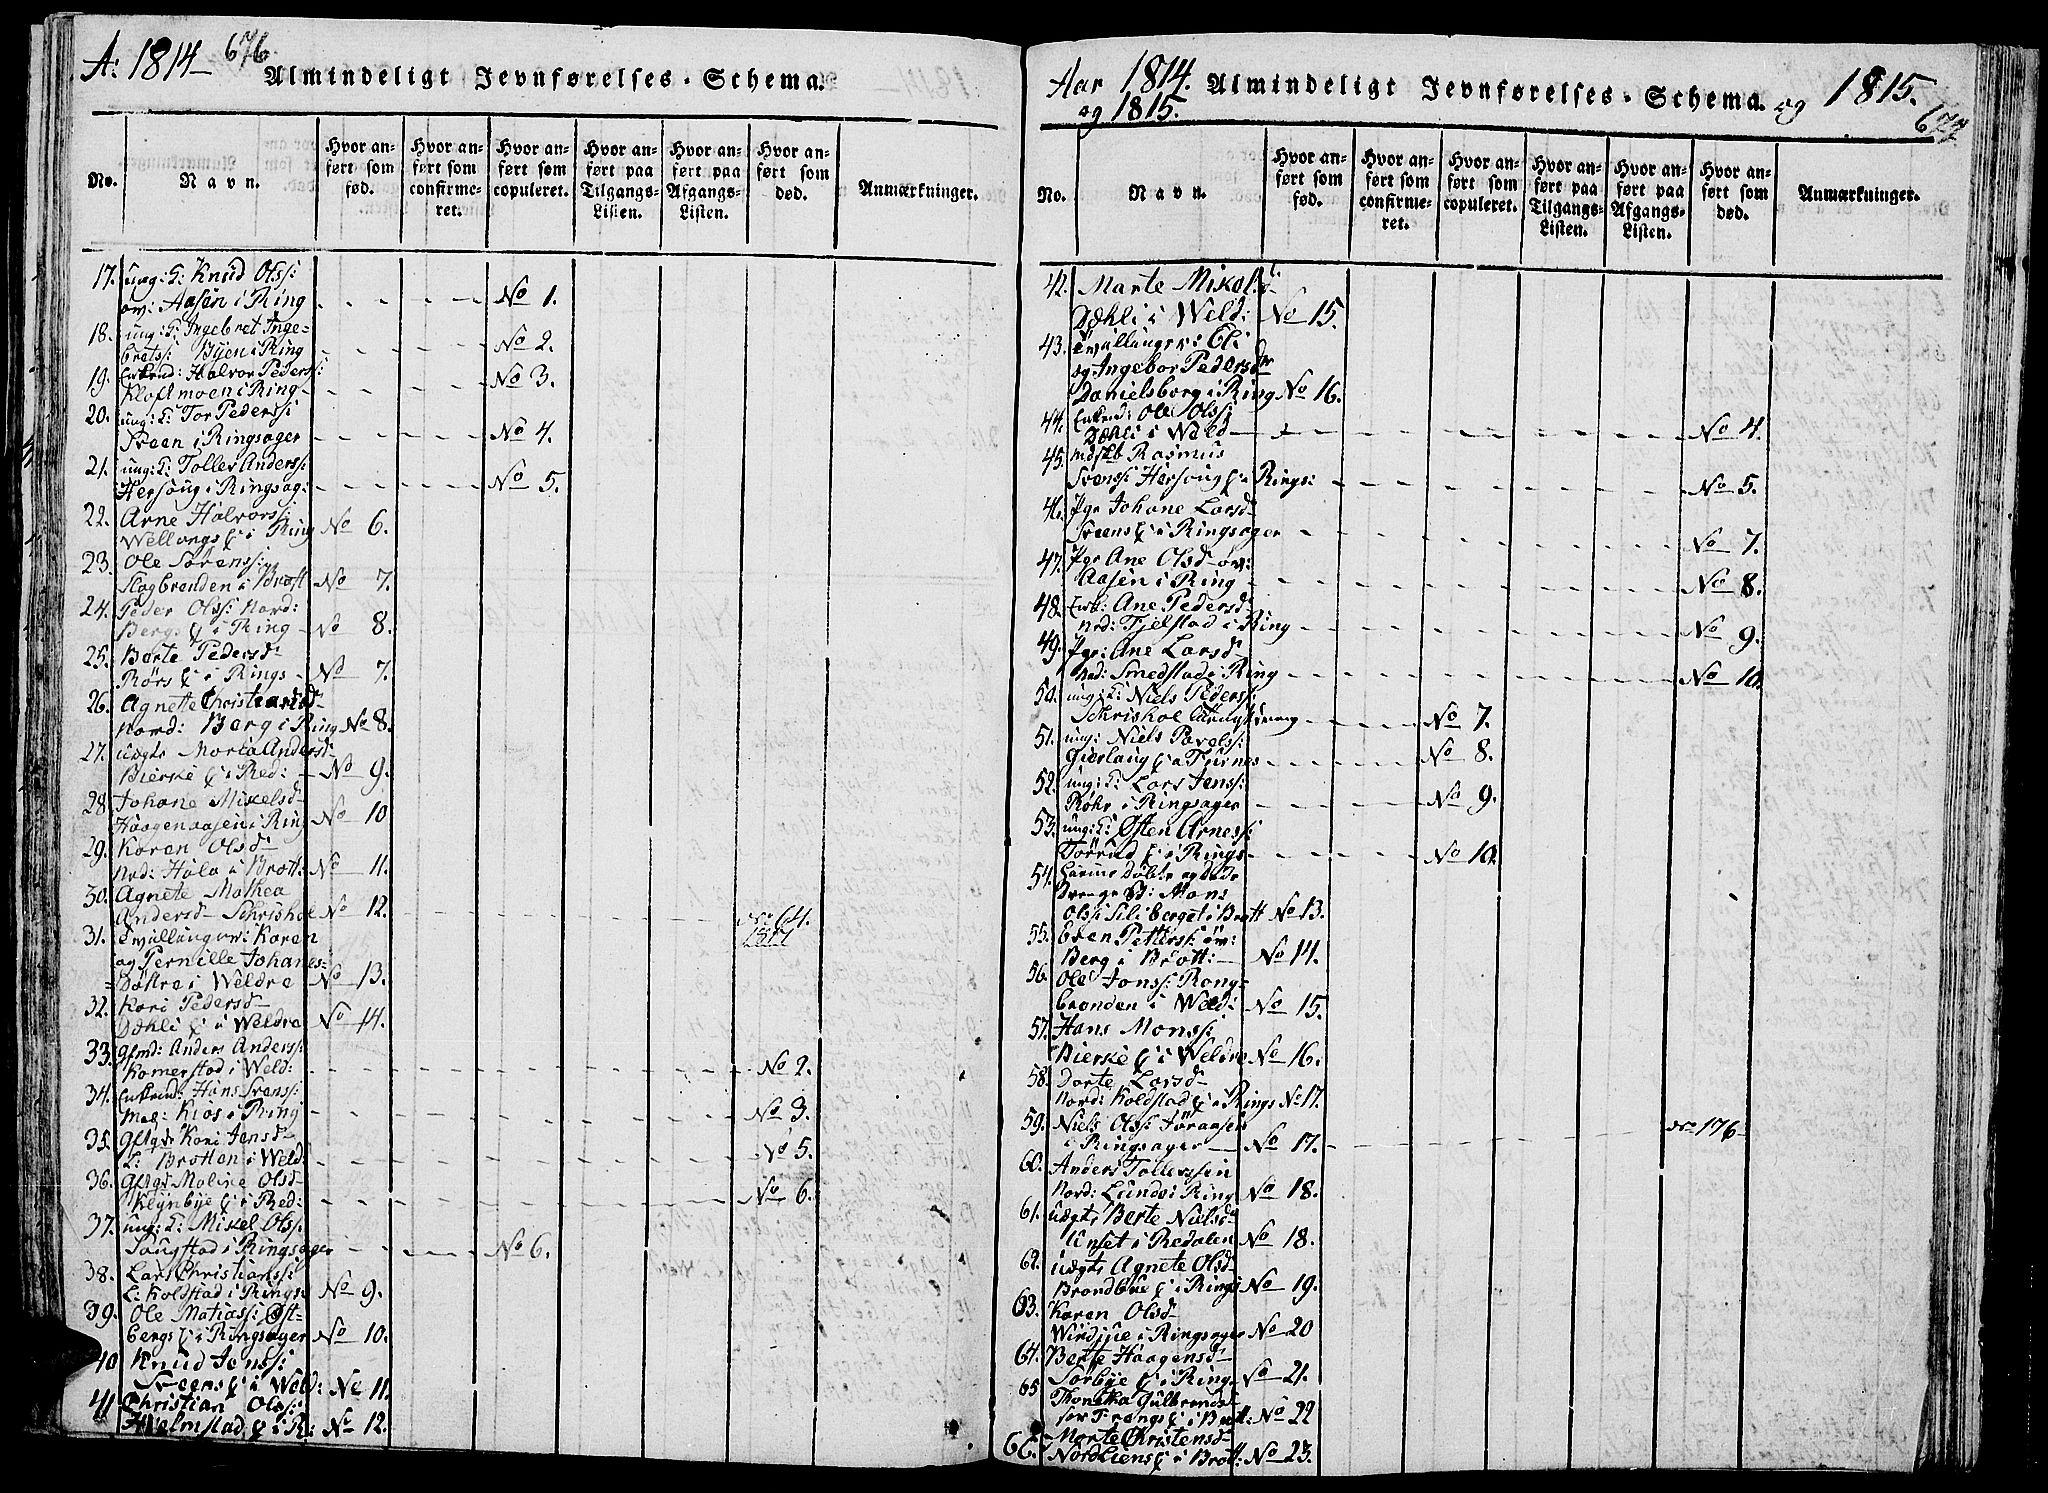 A: 1814 676
Almindeligt Jevnførelses-Schema.
No.
Navn.
Hvor anført som fød.
Hvor anført som confirmeret.
Hvor anført som copuleret.
Hvor anført paa Tilgangs-Listen.
Hvor anført paa Afgangs-Listen.
Hvor anført som død.
Anmærkninger.
17. ung: K: Knud Olss:
øv: Aasen i Ring No 1.
18. ung: K: Ingebret Inge=
bretss: Byen i Ring No 2.
19. Enkmd: Halvor Pederss:
Kloftmoen i Ring No 3.
20. ung: K: Tor Pederss:
Sveen i Ringsager No 4.
21. ung: K: Tollev Anderss:
Hersoug i Ringsag: No 5.
22. Arne Halvorss:
i Ring No 6.
23. Ole Sørenss:
Slagbrenden i Brøtt No 7.
24. Peder Olss: Nord:
Bergs i Ring No 8.
25. Berte Pedersd
Rørs i Rings No 7.
26. Agnette Christiansd
Nord: Berg i Ring No 8.
27. uægte Maria Andersd
Bierke i Red: No 9.
28. Johane Mikelsd
Haagenaasen i Ring No 10
29. Karen Olsd
Nrd: Hala i Brøtt: No 11.
30. Agnete Mathea
Andersd Schrishoe No 12. No 64.
31. Tvillinger: Karen
og Pernille Johanes=
i Weldre No 13.
32. Kari Pedersd
Dæhli i Weldre No 14.
33. Gfmd: Anders Anderss:
Komerstad i Weld: No 2.
34. Enkmd: Hans Svenss:
Mel: Kios i Ring No 3.
35. Gftqd: Kari Jensd
L: Brøtten i Weld: No 5.
36. Gftqd: Maline Olsd
Klynbye i Red: No 6.
37. ung: K: Mikel Olss:
Saugstad i Ringsager No 6.
38. Lars Christianss:
L: Koldstad i Rings: No 9.
39. Ole Matiass: Øst=
bergs i Ringsager No 10.
40 Knud Jenss:
Sveens i Weld: No 11.
41 Christian Olss:
Hielmstad i R: No 12.
Aar 1814. og 1815.
Almindeligt Jevnførelses-Schema.
og 1815.
677
No.
Navn.
Hvor anført som fød.
Hvor anført som confirmeret.
Hvor anført som copuleret.
Hvor anført paa Tilgangs-Listen.
Hvor anført paa Afgangs-Listen.
Hvor anført som død.
Anmærkninger.
42. Marte Mikelsd
Dæhli i Weld: No 15.
43. Tvillinger: Eli
og Ingebor Pedersdr
Danielsborg i Ring No 16.
44. Enkmd: Ole Olss:
Dæhli i Weld No 4.
45. Rasmus
Svenss: Hersoug i Rings: No 5.
46. Pge Johane Larsd
Sveens i Ringsager No 7.
47. Pge Ane Olsd øv:
Aasen i Ring No 8.
48. Enk: Ane Pedersd
Nrd: Tjelstad i Ring No 9.
49. Pge: Ane Larsd
Ned: Smedstad i Ring No 10.
50. ung: K: Niels Pederss:
Schrishoe No 7.
51. ung: Niels Pavelss:
Gierlaug a Furnes No 8.
52. ung: K: Lars Jenss:
Røhr i Ringsager No 9.
53. ung: K: Østen Arness:
Tørrud i Rings No 10.
54. døbte og døde
Drenge B: Mons
Olss: Siliberget i Brøtt No 13.
55. Even Petterss: øv:
Berg i Brøtt: No 14.
56. Ole Jonss: Rong=
branden i Weld: No 15.
57. Hans Monss:
Bierke i Weldre No 16.
58. Dorte Larsd
Nord: Koldstad i Rings No 17.
59. Niels Olss: Føraasen
i Ringsager No 17. No 176
60. Anders Tollerssen
Nord: Lunde i Ring No 18.
61. uægte Berte Nielsd
Unset i Redalen No 18.
62. uægte Agnete Olsd
Brondbye i Rings No 19.
63. Karen Olsd
i Ringsager No 20
64. Berte Haagensd
Sørbye i Ring No 21.
65 Thonetha Gulbrands
i Brøtt: No 22
66. Marte Christensd
Nordliens i Brøtt: No 23.